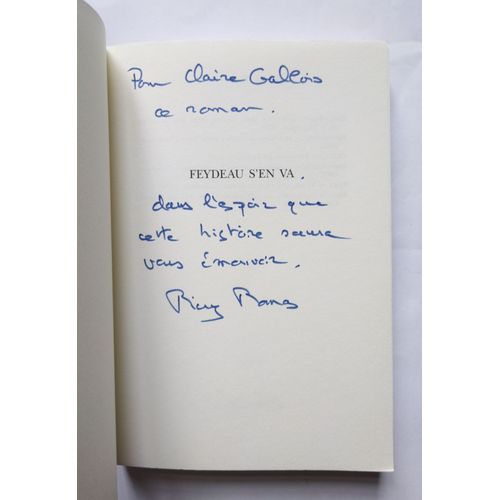 Pour Claire Gallois
ce roman.
FEYDEAU S'EN VA.
dans l'espoir que
cette histoire saura
vous émouvoir.